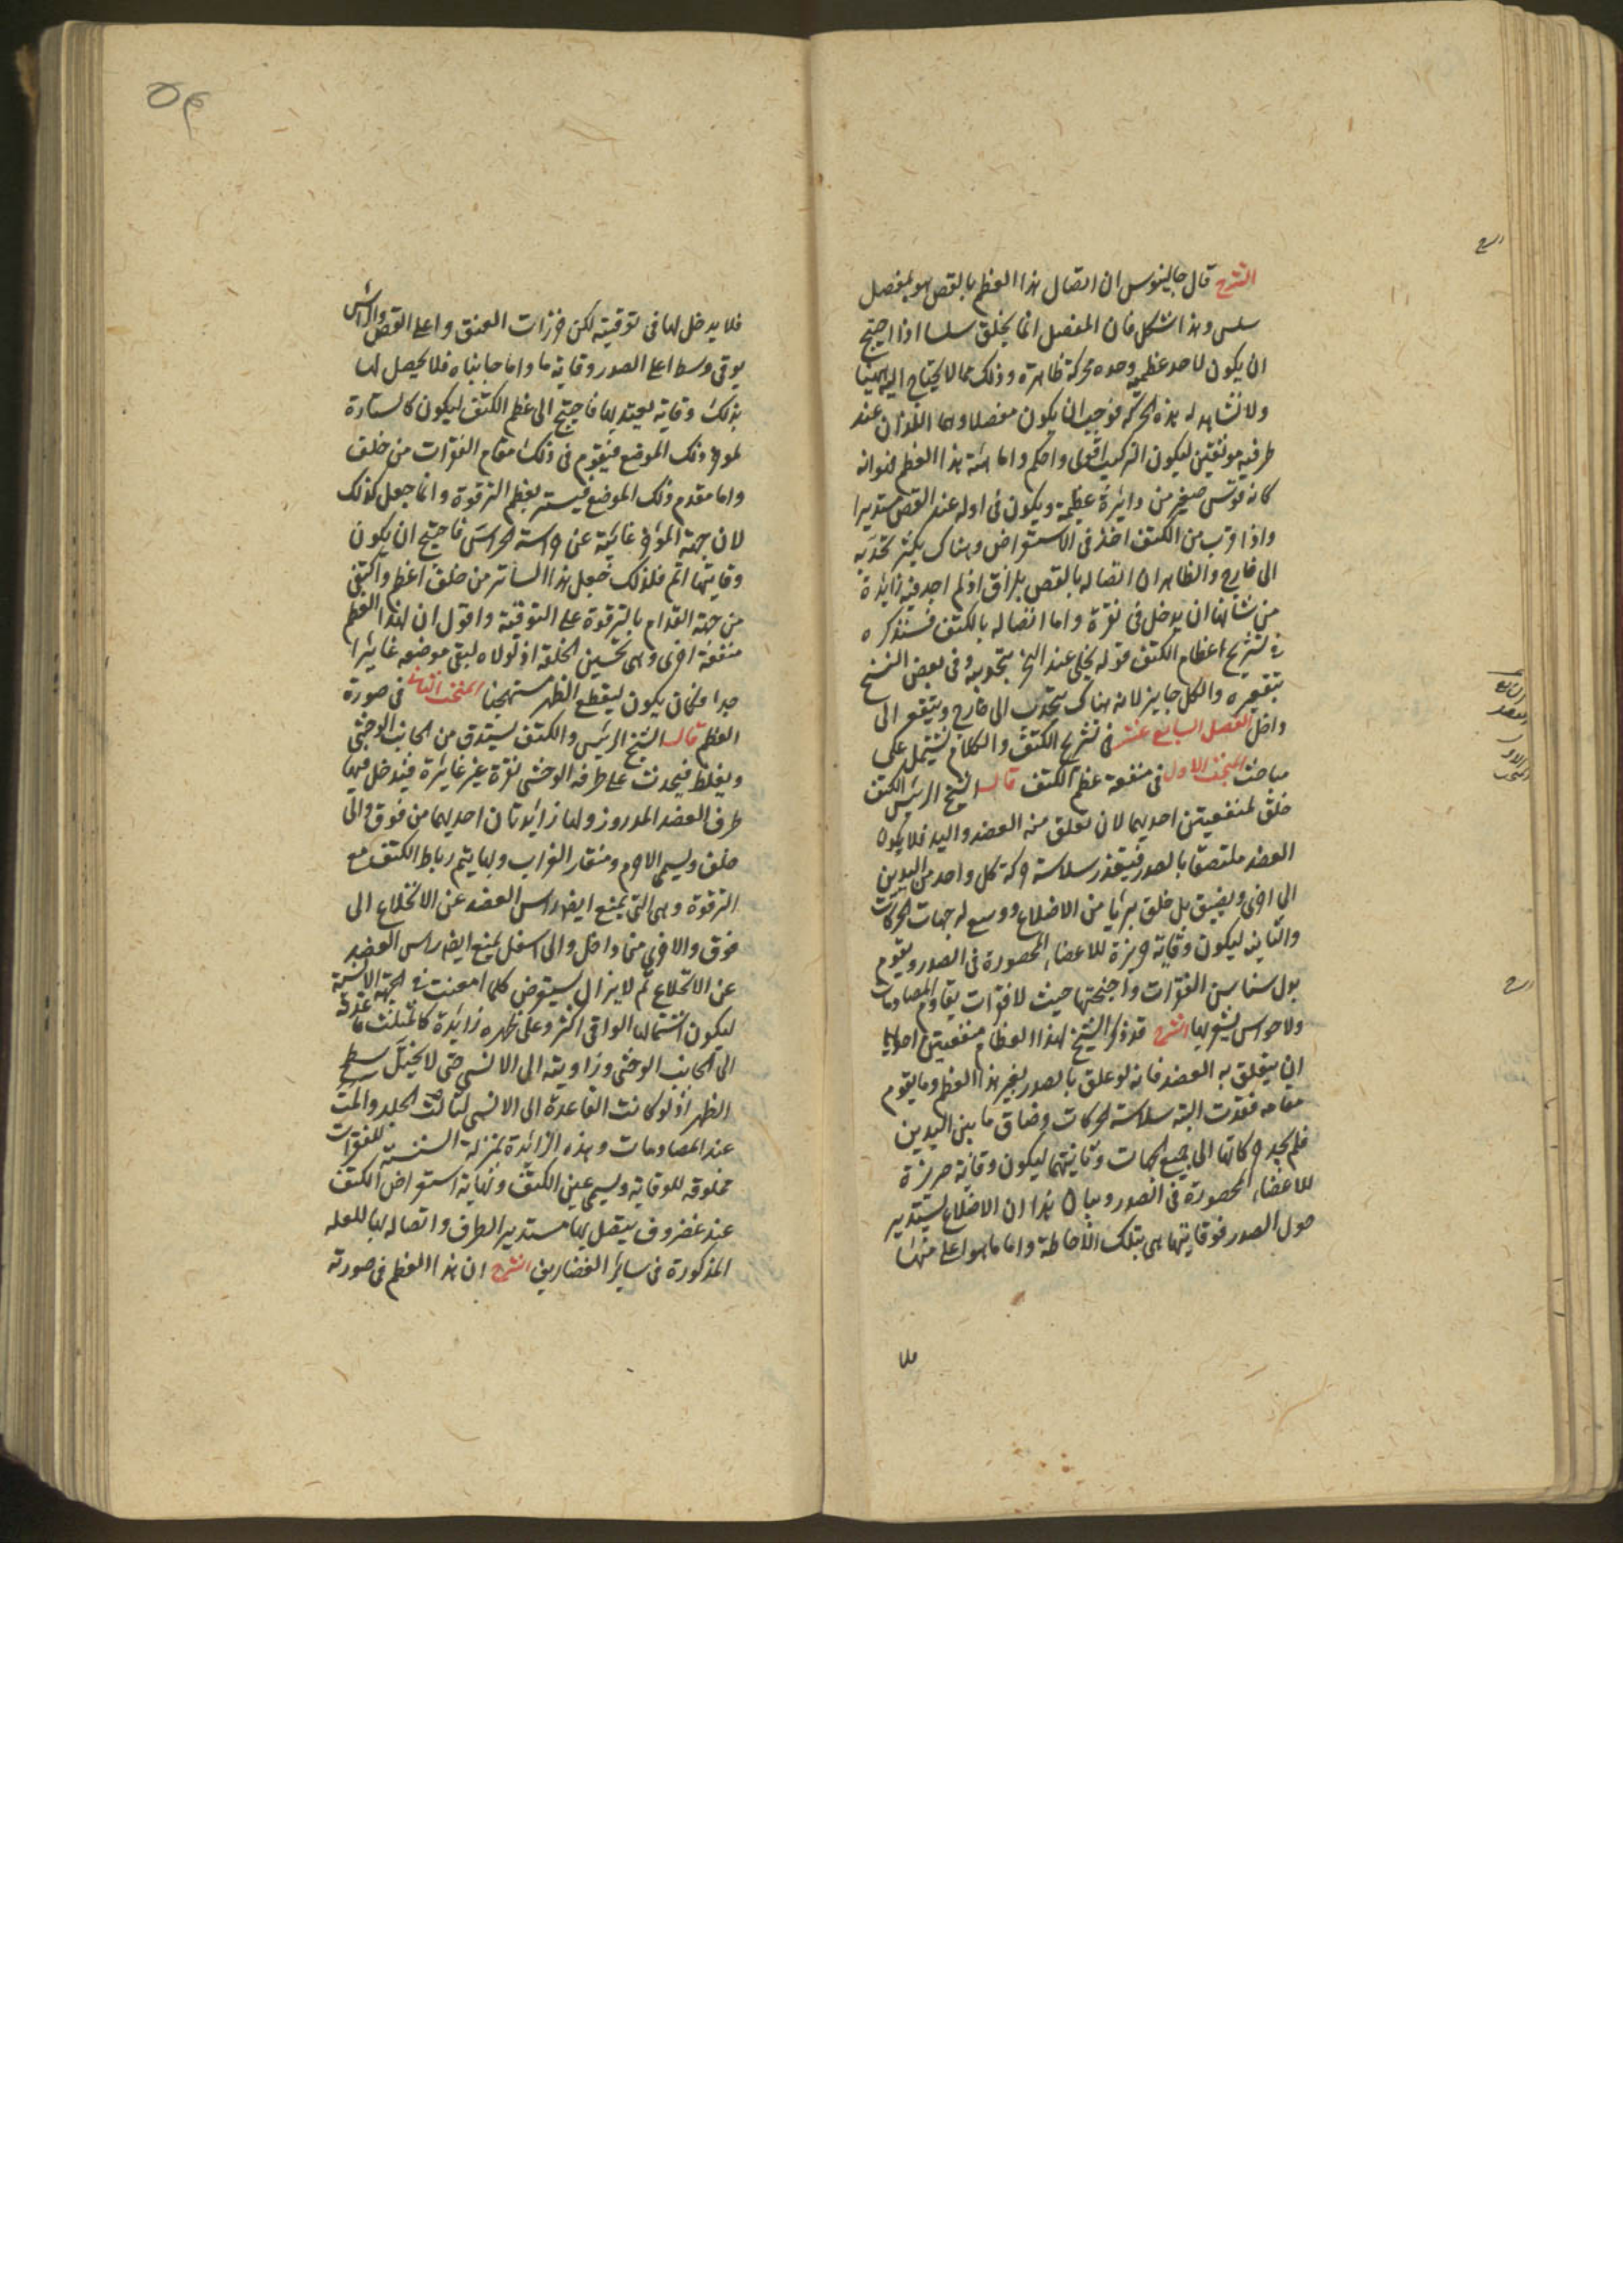 الشرح قال جالينوس ان اتصال هذا العظم بالقص هو بمفصل
سلس وهذا مشكل فان المفصل انما يخلق سلسا اذا احتيج
ان يكون لاحد عظميه وحده حركة ظاهرة وذلك مما لا يحتاج اليه ههنا
ولا نشاهد له هذه الحركة فوجب ان يكون مفصلاه هما اللذان عند
طرفيه موثقين ليكون التركيب اقوى واحكم واما هيئة هذا العظم فهو انه
كانه قوس صغير من دائرة عظيمة ويكون في اوله عند القص مستديرا
واذا قرب من الكتف اخذ في الاستعراض وهناك يكثر تحدبه
الى خارج والظاهر ان اتصاله بالقص بلزاق اذ لم اجد فيه زائدة
من شانها ان يدخل في نقرة واما اتصاله بالكتف فسنذكره
في تشريح اعظام الكتف قوله يخلى عند النحر بتحدبه وفي بعض النسخ
بتقعيره والكل جايز لانه هناك يتحدب الى خارج ويتقعر الى
داخل الفصل السابع عشر في تشريح الكتف والكلام يشتمل على
مباحث البحث الاول في منفعة عظم الكتف قال الشيخ الرئيس الكتف
خلق لمنفعتين احديهما لان تعلق منه العضد واليد فلا يكون
العضد ملتصقا بالصدر فيتعذر سلاسة حركة كل واحد من اليدين
الى اخرى ويضيق بل خلق بريا من الاضلاع ووسع له جهات الحركات
والثانية ليكون وقاية حريزة للاعضاء المحصورة في الصدر ويقوم
بدل سناسن الفقرات واجنحتها حيث لا فقرات يقاوم المصادمات
ولا حواس يشعر بها الشرح قد ذكر الشيخ لهذا العظام منفعتين احديهما
ان يتعلق به العضد فانه لو علق بالصدر بغير هذا العظم وما يقوم
مقامه فقدت البتة سلاسة الحركات وضاق ما بين اليدين
فلم يجد حركاتها الى جميع الجهات وثانيتهما ليكون وقاية حريزة
للاعضاء المحصورة في الصدر وبيان هذا ان الاضلاع يستدير
حول الصدر فوقايتها هي بتلك الاحاطة واما ما هو اعلى منها
فلا
فلا يدخل لها في توقيته لكن خرزات العنق واعلى القص والراس
يوقى وسط اعلى الصدر وقاية ما واما جانباه فلا يحصل لها
بذلك وقاية يعتد بها فاحتيج الى عظم الكتف ليكون كالستارة
لمؤخر ذلك الموضع فيقوم في ذلك مقام الفقرات من خلف
واما مقدم ذلك الموضع فيستر بعظم الترقوة وانما جعل كذلك
لان جهة المؤخر غائبة عن حراسة الحواس فاحتيج ان يكون
وقايتها اتم فلذلك جعل هذا الساتر من خلف اعظم واكتفي
من جهة القدام بالترقوة على التوقية واقول ان لهذا العظم
منفعة اخرى وهي تحسين الخلقة اذ لولاه لبقى موضعه غائرا
جدا وكان يكون ليقطع الظهر مستهجنا البحث الثاني في صورة
العظم قال الشيخ الرئيس والكتف يستدق من الجانب الوحشي
ويغلظ فيحدث على طرفه الوحشي نقرة غير غائرة فيدخل فيها
طرف العضد المدور ولها زائدتان احديهما من فوق والى
خلف ويسمى الاخرم ومنقار الغراب وبها يتم رباط الكتف مع
الترقوة وهي التي يمنع ايضا راس العضد عن الانخلاع الى
فوق والاخرى من داخل والى اسفل يمنع ايضا راس العضد
عن الانخلاع ثم لا يزال يستعرض كلما امعنت في الجهة الانسية
ليكون اشتمالها الواقي اكثر وعلى ظهره زائدة كالمثلث قاعدته
الى الجانب الوحشي وزاويته الى الانسي حتى لا يختل سطح
الظهر اذ لو كانت القاعدة الى الانسي لشالت الجلد والمت
عند المصادمات وهذه الزائدة بمنزلة السنسنة للفقرات
مخلوقة للوقاية ويسمى عين الكتف ونهاية استعراض الكتف
عند غضروف يتصل بها مستدير الطرف واتصاله بها للعلة
المذكورة في سائر الغضاريف الشرح ان هذا العظم في صورته